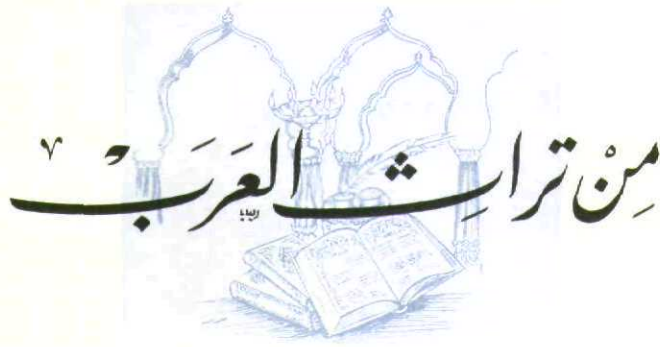 مِنْ تراثِ العَرَبْ